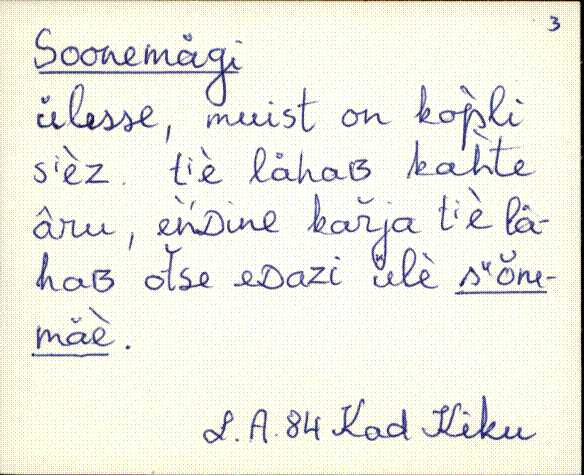 3
Soonemägi
ülesse, muist on kop̀li
sⁱèz. tⁱè lähaʙ kah̀te
âru, èǹᴅine kařja tⁱè lä-
haʙ otse eᴅazi ülè sᵘŏne-
mäè.
L.A. 84 Kad Kiku